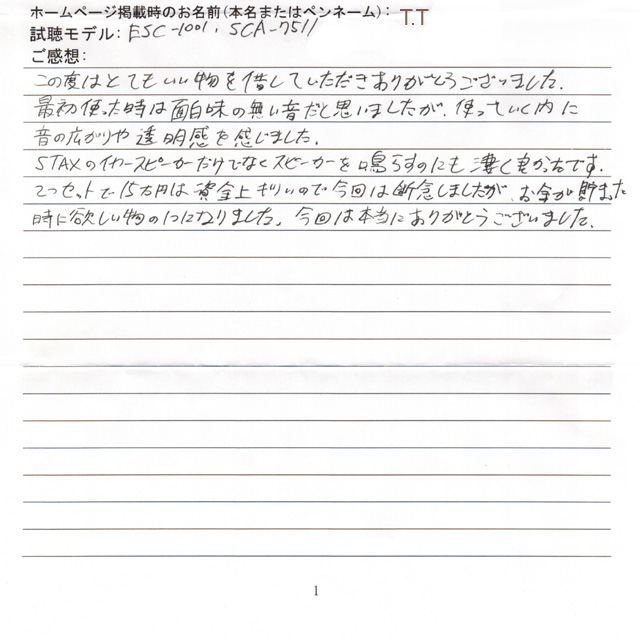 ホームページ掲載時のお名前(本名またはペンネーム): T.T
試聴モデル: ESC-1001, SCA-7511
ご感想:
この度はとてもいい物を借していただきありがとうございました。
最初使った時は面白味の無い音だと思いましたが、使っていく内に
音の広がりや透明感を感じました。
STAXのイヤースピーカーだけでなくスピーカーを鳴らすのにも凄く良かったです。
2つセットで15万円は資金上キツいので今回は断念しましたが、お金が貯まった
時に欲しい物の1つになりました。今回は本当にありがとうございました。
1